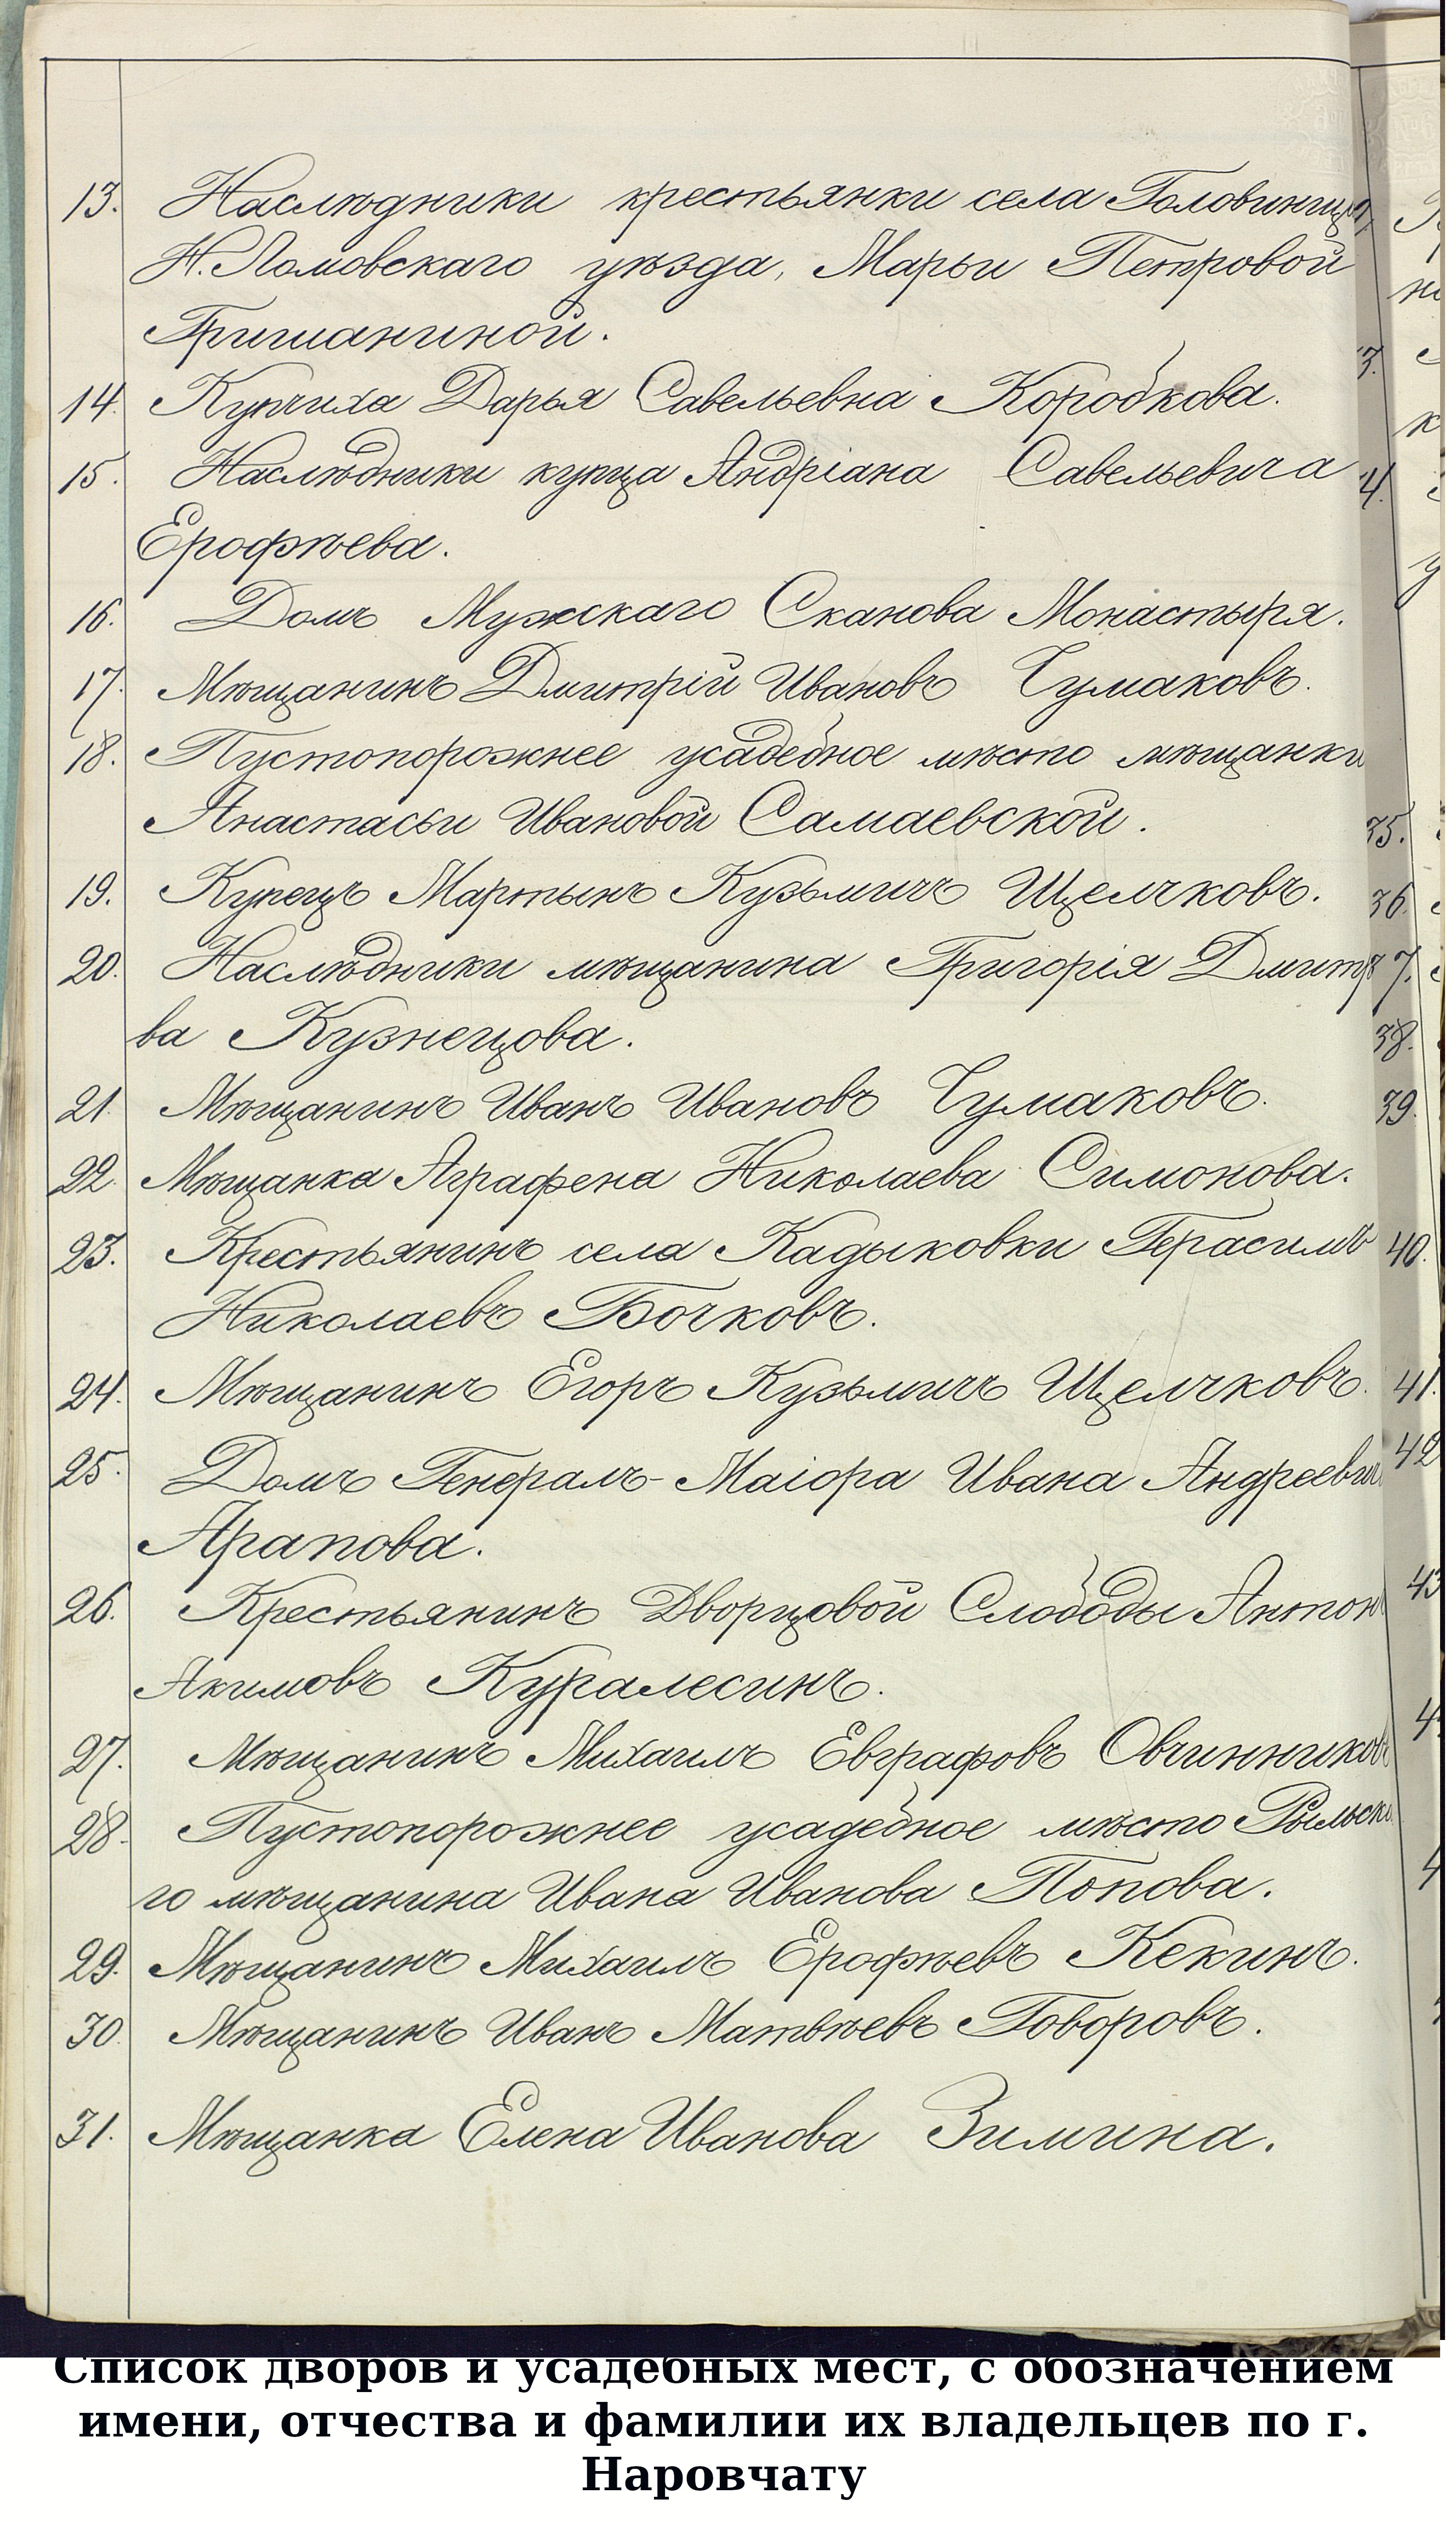 13. Наслѣдники крестьянки села Головинщ
Н. Ломовскаго уѣзда, Марьи Петровой
Гришаниной.
14. Купчиха Дарья Савельевна Коробкова.
15. Наслѣдники купца Андріана Савельевича
Ерофѣева.
16. Домъ Мужскаго Сканова Монастыря.
17. Мѣщанинъ Дмитрій Ивановъ Чумаковъ.
18. Пустопорожнее усадебное мѣсто мѣщанки
Анастасьи Ивановой Самаевской.
19. Купецъ Мартынъ Кузьмичъ Щелчковъ.
20. Наслѣдники мѣщанина Григорія Дмитр
ва Кузнецова.
21. Мѣщанинъ Иванъ Ивановъ Чумаковъ.
22. Мѣщанка Аграфена Николаева Симонова.
23. Крестьянинъ села Кадыковки Герасимъ
Николаевъ Бочковъ.
24. Мѣщанинъ Егоръ Кузьмичъ Щелчковъ.
25. Домъ Генералъ-Маіора Ивана Андреевич
Арапова.
26. Крестьянинъ Дворцовой Слободы Антон
Акимовъ Куралесинъ.
27. Мѣщанинъ Михаилъ Евграфовъ Овчинников
28. Пустопорожнее усадебное мѣсто Рыльска
го мѣщанина Ивана Иванова Попова.
29. Мѣщанинъ Михаилъ Ерофѣевъ Кекинъ.
30. Мѣщанинъ Иванъ Матвѣевъ Говоровъ.
31. Мѣщанка Елена Иванова Зимина.
35.
36.
38.
39.
40.
41.
42
43
Список дворов и усадебных мест, с обозначением
имени, отчества и фамилии их владельцев по г.
Наровчату